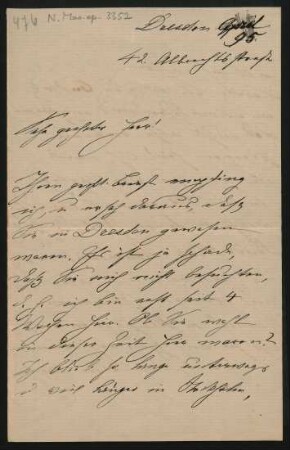 476 N. Mscr. 3352
Dresden April
95.
42. Albrechtstraße
Sehr geehrter Herr!
Ihren Brief empfing
ich, u. ersah daraus, daß
Sie in Dresden gewesen
waren. Es ist ja schade,
daß Sie mich nicht besuchten,
d. h. ich bin erst seit 4
Wochen hier. Ob Sie wohl
in dieser Zeit hier waren?
Ich blieb so lange unterwegs
u. weil länger in